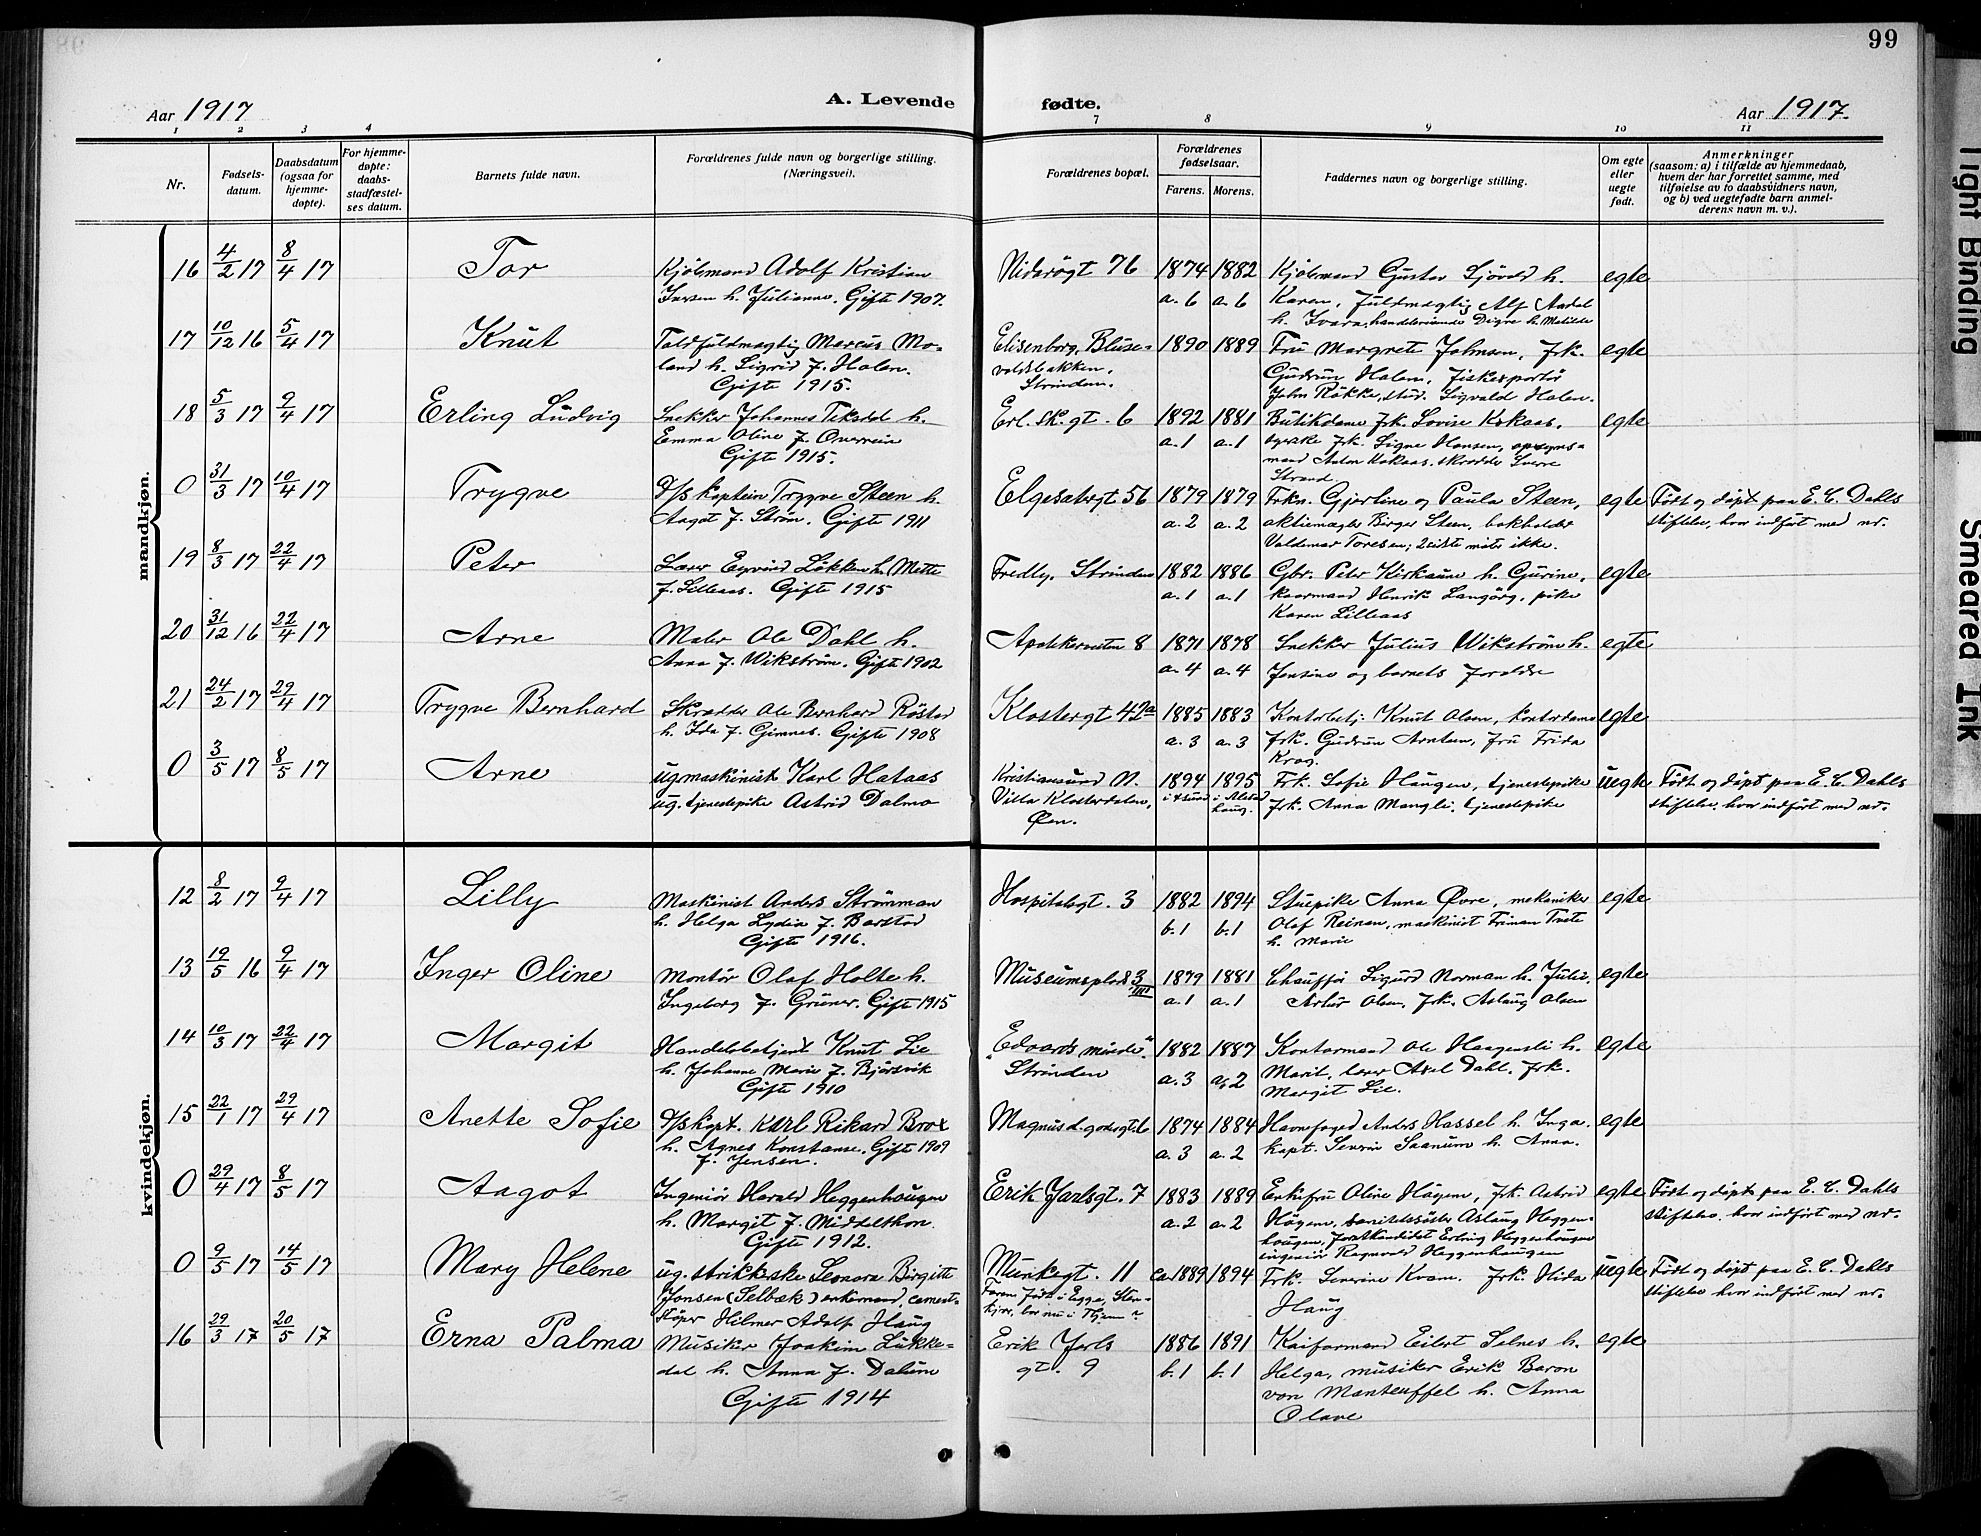 99
Aar 1917
A. Levende
fødte.
Aar 1917.
1 2 3 4 7 8 9 10 11
Nr.
Fødsels-
datum.
Daabsdatum
(ogsaa for
hjemme-
døpte).
For hjemme-
døpte:
daabs-
stadfæstel-
ses datum.
Barnets fulde navn.
Forældrenes fulde navn og borgerlige stilling.
(Næringsvei).
Forældrenes bopæl.
Forældrenes
fødselsaar.
Farens. Morens.
Faddernes navn og borgerlige stilling.
Om egte
eller
uegte
født.
Anmerkninger
(saasom: a) i tilfælde av hjemmedaab,
hvem der har forrettet samme, med
tilføielse av to daabsvidners navn,
og b) ved uegtefødte barn anmel-
derens navn m. v.).
mandkjøn.
16 4/2 17 8/4 17 Tor
Kjøbmand Adolf Kristian
h. Julianne. Gift 1907.
Nidarøgt 76
1874 1882
a. 6 a. 6
Kjøbmand Gustav Sjøvold h.
Karen, fuldmægtig Alf
h. Ivara, handelsreisende Digre h. Matilde
egte
17 10/12 16 5/4 17 Knut
Toldfuldmægtig Marcus Mo-
land h. Sigrid f. Halen.
Gifte 1915.
Elisenborg, Bluse-
voldsbakken.
Strinden.
1890 1889
Fru Margrete Johnsen, frk.
Gudrun Halem, fiskexportør
John Røkke, stud. Sigvald Halen.
egte
18 5/3 17 9/4 17 Erling Ludvig
Snekker Johannes Tiksdal h.
Emma Oline f. Overvein
Gifte 1915.
Erl. sk. gt. 6
1892 1881
a. 1 a. 1
Butikdame frk. Lovise Kokaas.
syerske frk. Signe Hansen, opsyns-
mand Anton Kokaas, skrædder Sverre
Strand
egte
0 31/3 17 10/4 17 Trygve
D/s kaptein Trygve Steen h.
Aagot f. Strøm. Gifte 1911
Elgesætergt 56
1879 1879
a. 2 a. 2
Frkn. Gjertine og Paula Steen,
aktiemægler Birger Steen, bokholder
Valdemar Toresen; 2 sidste møter ikke.
egte
Født og døpt paa E. C. Dahls
stiftelse, hvor indført med nr.
19 8/3 17 22/4 17 Peter
Lærer Eyvind Løkken h. Mette
f. Lilleaas. Gifte 1915
Fredly, Strinden
1882 1886
a. 1 a. 1
Gbr. Peter Kirkaune h. Gurine,
Henrik Langørg, pike
Karen Lilleaas
egte
20 31/12 16 22/4 17 Arne
Maler Ole Dahl h.
Anna f. Wikstrøm. Gift 1902
Apotekerveiten 8
1871 1878
a. 4 a. 4
Snekker Julius Wikstrøm h.
Jensine og barnets forældre
egte
21 24/2 17 29/4 17 Trygve Bernhard
Skrædder Ole Bernhard Røstad
h. Ida f. Gimnes. Gifte 1908
Klostergt 42a
1885 1883
a. 3 a. 3
Kontorbetj. Knut Olsen, kontordame
frk. Gudrun Arntsen, fru Frida
Krog.
egte
0 3/5 17 8/5 17 Arne
ug maskinist Karl Hataas
ug. tjenestepike Astrid Dalmo
Kristiansund N.
Villa Klosterdalen,
Øen.
1894 1895
Frk. Sofie Haugen, tjenestepike
frk. Anna Mangli, tjenestepike
uegte
Født og døpt paa E. C. Dahls
stiftelse, hvor indført med nr.
kvindekjøn.
12 8/2 17 9/4 17 Lilly
Maskinist Anders Strømman
h. Helga Lydia f. Barstad
Gifte 1916.
Hospitalsgt. 3
1882 1894
b. 1 b. 1
Stuepike Anna Øvre, mekaniker
Olaf Reinan, maskinist Friman Tvete
h. Marie
egte
13 19/5 16 9/4 17 Inger Oline
Montør Olaf Holte h.
Ingeborg f. Grüner. Gifte 1915
Museumsplads 3 III
1879 1881
a. 1 a. 1
Chauffør Sigurd Norman h. Julie,
Artur Olsen, frk. Aslaug Olsen
egte
14 10/3 17 22/4 17 Margit
Handelsbetjent Knut Lie
h. Johanne Marie f. Bjørsvik
Gifte 1910
"Edvards minde"
Strinden
1882 1887
a. 3 a. 2
Kontormand Ole Haagensli h.
Marit, lærer Axel Dahl, frk.
Margit Lie.
egte
15 22/1 17 29/4 17 Anette Sofie
D/s kapt. Karl Rikard Brox
h. Agnes Konstanse. Gift 1909
f. Jensen.
Magnus d. godesgt. 6
1874 1884
a. 3 a. 2
Havnefoged Anders Hassel h. Inga.
kapt. Severin Saanum h. Anna.
egte
0 29/4 17 8/5 17 Aagot
Ingeniør Harald Heggenhougen
h. Margit f. Middelthon.
Gifte 1912.
Erik Jarlsgt. 7
1883 1889
a. 2 a. 2
Enkefru Oline Høyem, frk. Astrid
Høyem, sanitetssøster Aslaug Heggen-
hougen, forstkandidat Erling Heggenhougen
ingeniør Ragnvald Heggenhougen
egte
Født og døpt paa E. C. Dahls
stiftelse, hvor indført med nr.
0 9/5 17 14/5 17 Mary Helene
ug. strikkerske Leonora Birgitte
Jonsen (Selbæk) enkemand, cement-
støper Hilmer Adolf Haug
Munkegt. 11
Faren født i Egge, Sten-
kjær, bor nu i
ca 1889 1894
Frk. Severine Kvam. frk. Hida
Haug
uegte
Født og døpt paa E. C. Dahls
stiftelse, hvor indført med nr.
16 29/3 17 20/5 17 Erna Palma
Musiker Joakim Løkke-
dal h. Anna f. Dalum
Gifte 1914
Erik Jarls
gt. 9
1886 1891
b. 1 b. 1
Kaiformand Eilert Selnes h.
Helga, musiker Erik Baron
von Manteuffel h. Anna
Olave
egte
Tight Binding
Smeared Ink